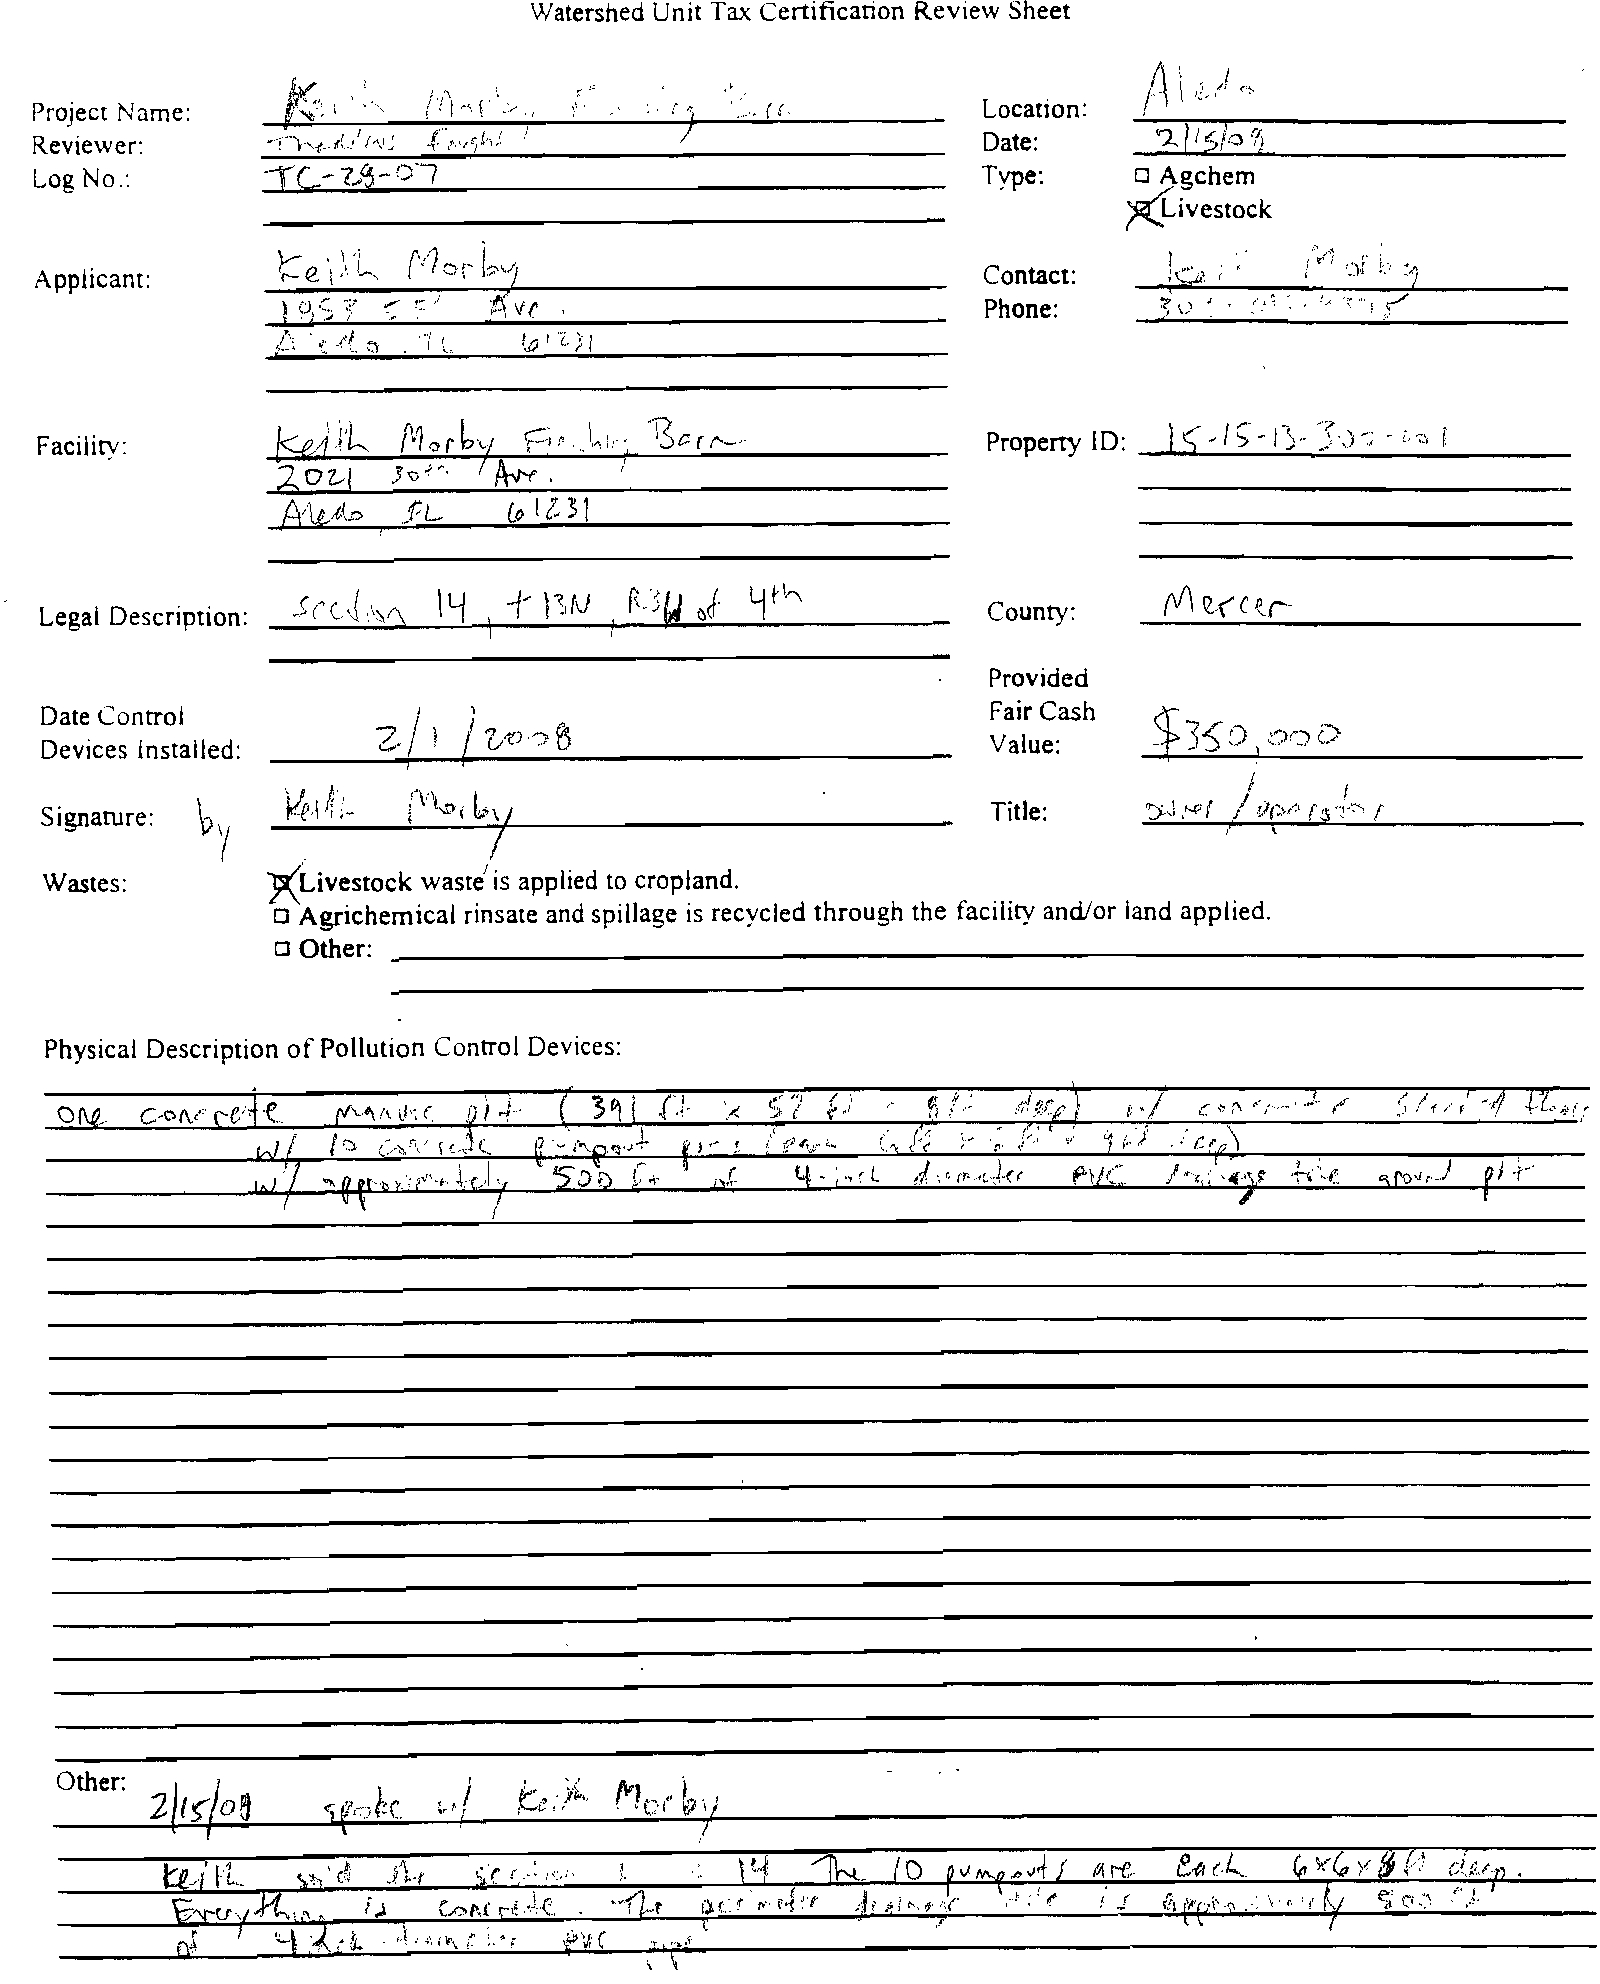 Watershed Unit Tax Certification Review Sheet
Project Name: Keith Morby Finishing Barn
Location: Aledo
Reviewer: Faught
Date: 2/15/08
Log No.: TC-28-07
Type: □ Agchem
☒ Livestock
Applicant: Keith Morby
Contact: Keith Morby
Ave.
Phone:
Aledo, IL 61231
Facility: Keith Morby Finishing Barn
Property ID: 15-15-13-300-001
2021 30th Ave.
Aledo, IL 61231
Legal Description: section 14, T13N, R3W of 4th
County: Mercer
Provided
Date Control
Fair Cash
Devices Installed: 2/1/2008
Value: $350,000
Signature: by Keith Morby
Title: owner/operator
Wastes: ☒ Livestock waste is applied to cropland.
□ Agrichemical rinsate and spillage is recycled through the facility and/or land applied.
□ Other:
Physical Description of Pollution Control Devices:
one concrete manure pit (391 ft x 52 ft x 8 ft deep) w/ concrete slatted floors
w/ 10 concrete pumpout (each deep)
w/ approximately 500 ft of 4-inch diameter PVC drainage tile around pit
Other: 2/15/08 spoke w/ Keith Morby
Keith said the section is 14. The 10 pumpouts are each 6x6x8 ft deep.
Everything is concrete. The perimeter drainage tile is approximately 500 ft
of 4 inch diameter PVC pipe